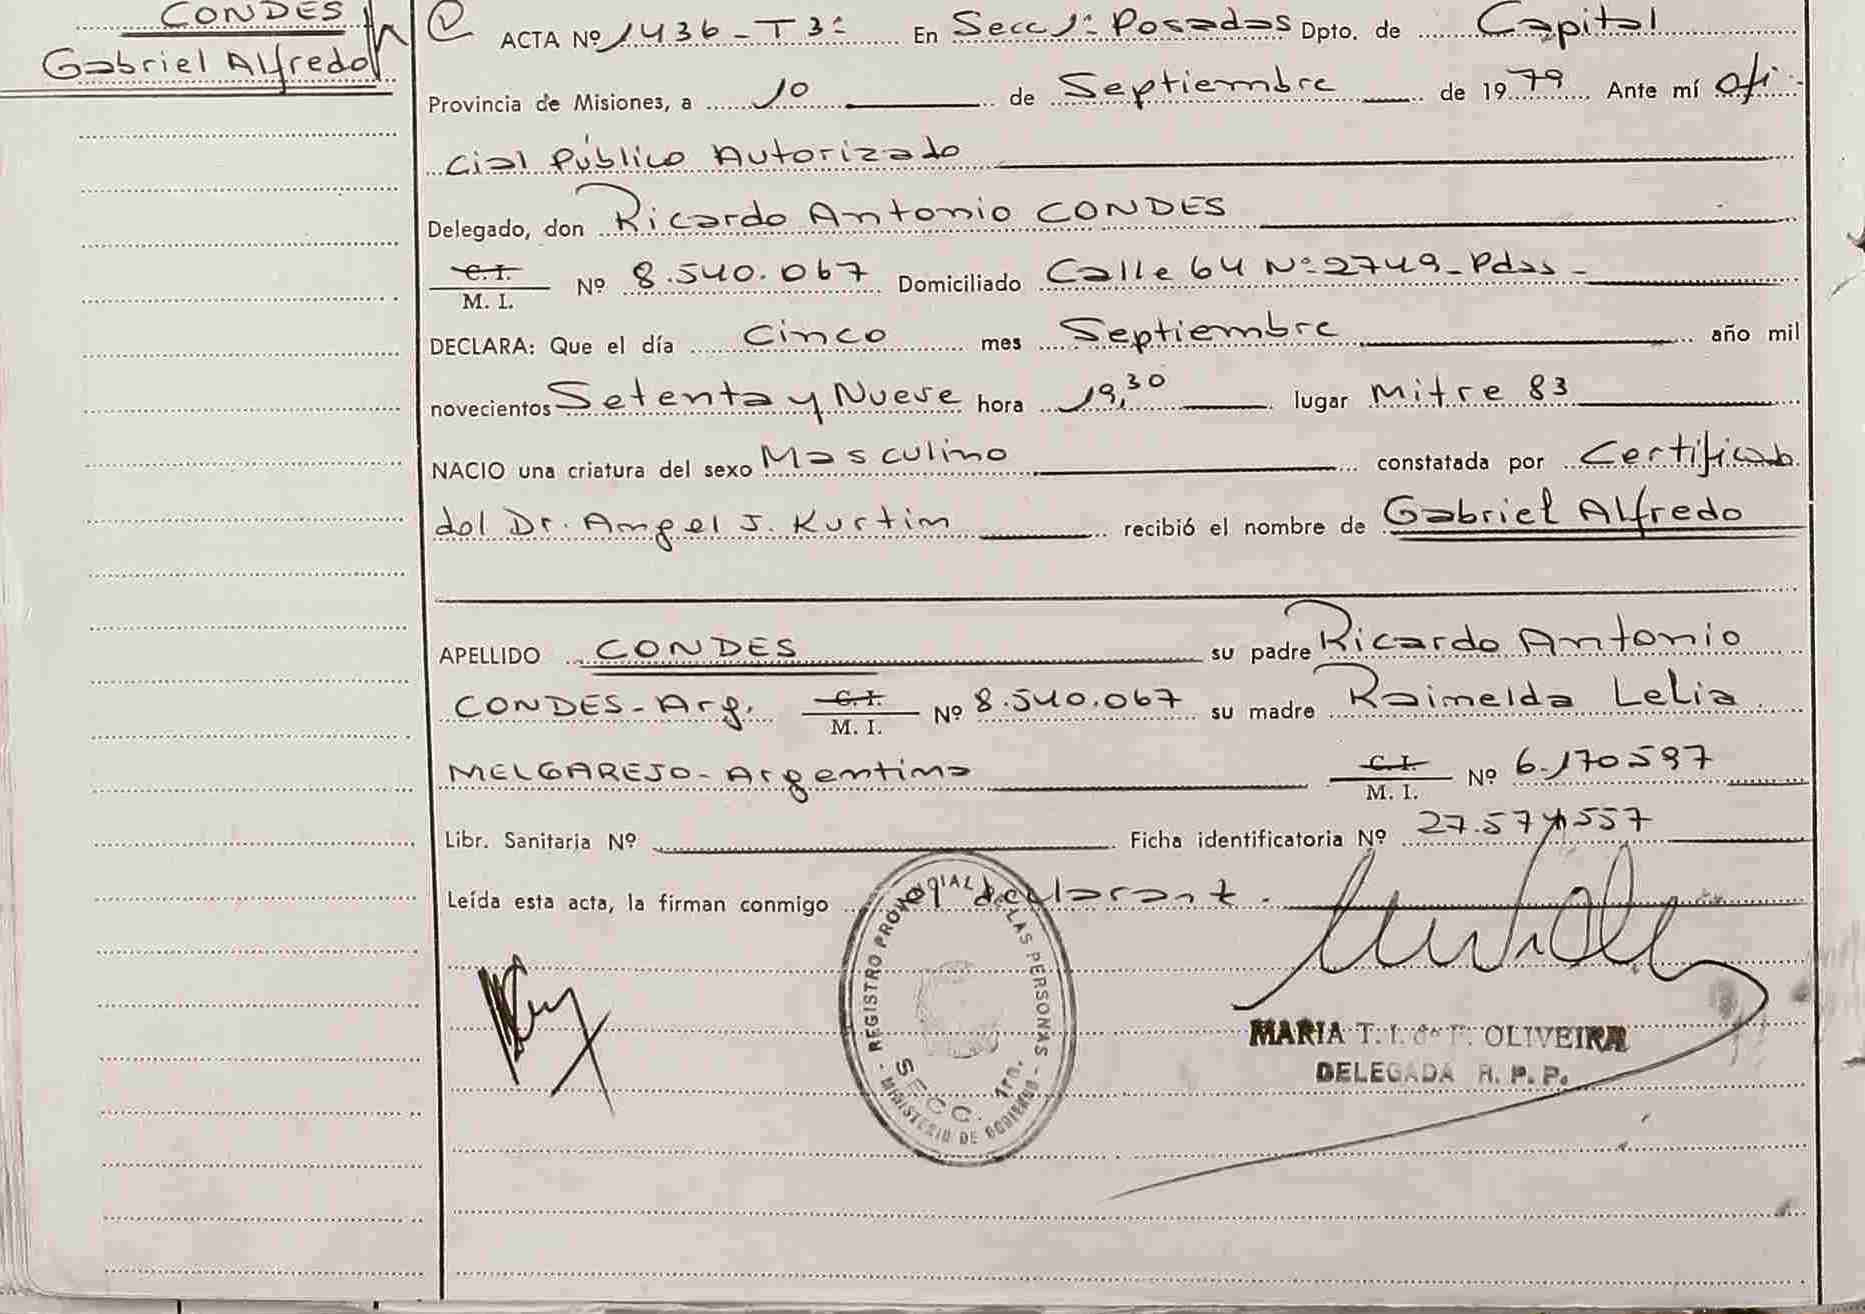 CONDES
Gabriel Alfredo
ACTA Nº 1436 - T3º En Secc 1ª Posadas Dpto. de Capital
Provincia de Misiones, a 10 de Septiembre de 1979 Ante mí Ofi
cial Público Autorizado
Delegado, don Ricardo Antonio CONDES
C.I.
M. I. Nº 8.540.067 Domiciliado Calle 64 Nº 2749 - Pdas -
DECLARA: Que el día Cinco mes Septiembre año mil
novecientos Setenta y Nueve hora 19,30 lugar Mitre 83
NACIO una criatura del sexo Masculino constatada por Certificado
del Dr. Angel J. Kurtin recibió el nombre de Gabriel Alfredo
APELLIDO CONDES su padre Ricardo Antonio
CONDES - Arg. C.I. Nº 8.540.067 su madre Raimelda Lelia
M. I.
MELGAREJO - Argentina C.I. Nº 6.170597
M. I.
Libr. Sanitaria Nº Ficha identificatoria Nº 27.574557
Leída esta acta, la firman conmigo el declarant.
REGISTRO PROVINCIAL DE LAS PERSONAS
SECC. 1ra.
- MINISTERIO DE GOBIERNO -
MARIA T. I. de OLIVEIRA
DELEGADA R. P. P.